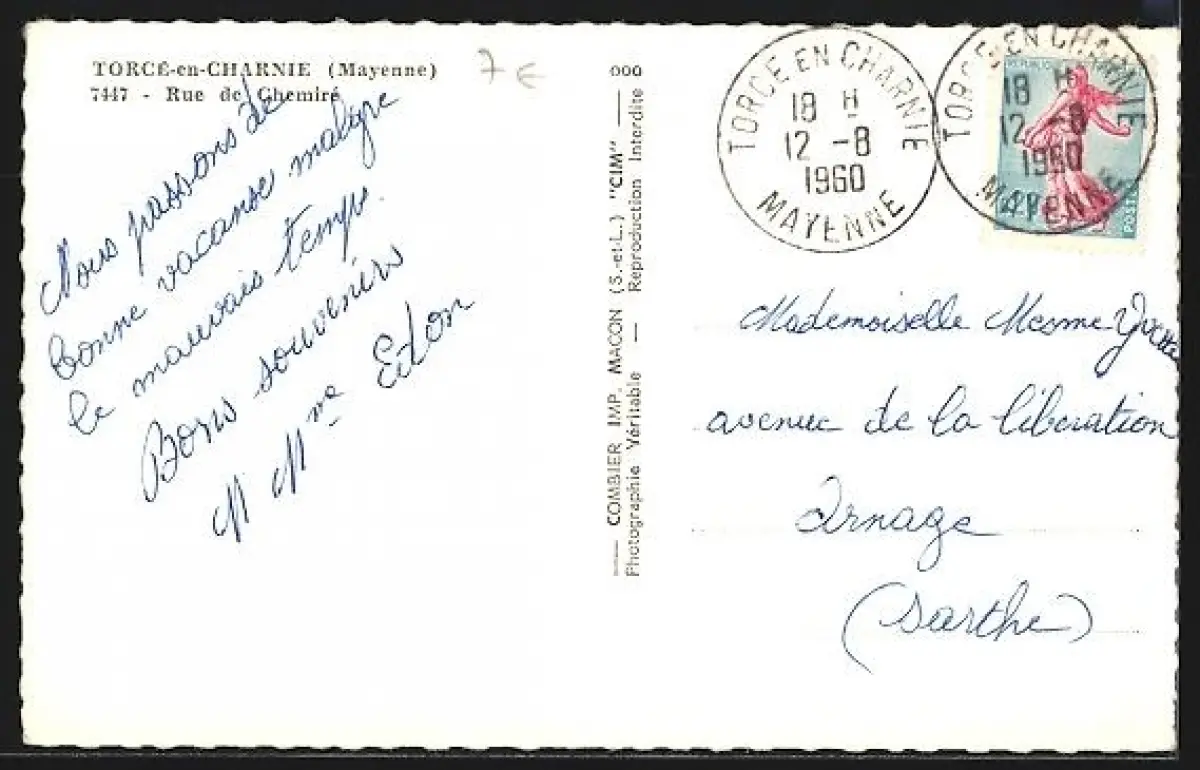 TORCÉ-en-CHARNIE (Mayenne)
7447 - Rue de Chemiré
7 €
Nous passons de
bonne vacanse malgre
le mauvais temps.
Bons souvenirs
M Mme Eton
ooo
COMBIER IMP. MACON (S.-et-L.) "CIM"
Photographie Véritable — Reproduction Interdite
TORCE EN CHARNIE
18 H
12 -8
1960
MAYENNE
TORCE EN CHARNIE
18 H
12 -8
1960
MAYENNE
Mademoiselle Mesme Yvette
avenue de la libération
Arnage
(Sarthe)